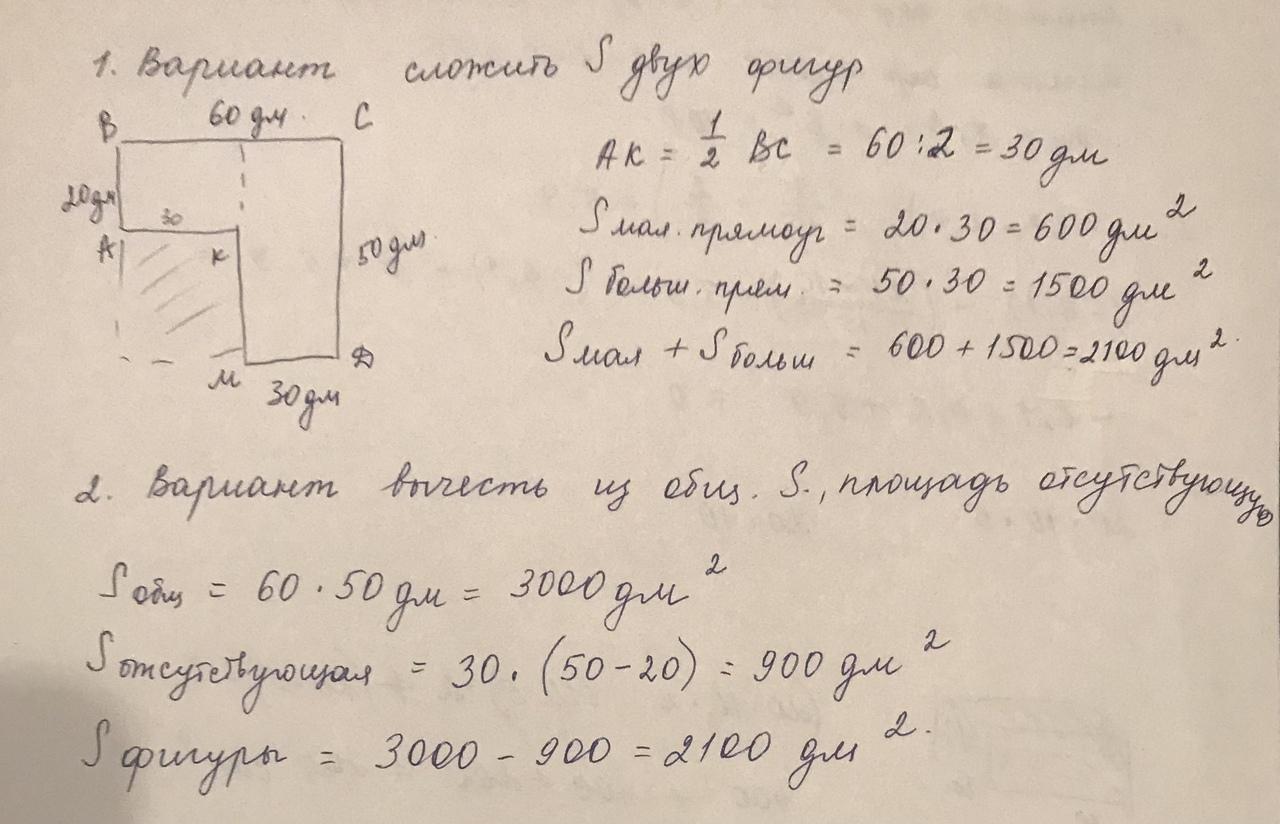 1. Вариант сложить S двух фигур
B 60 дм. C
20 дм
30
A K
50 дм.
M D
30 дм
AK = 1/2 BC = 60 : 2 = 30 дм
S мал. прямоуг = 20 · 30 = 600 дм²
S больш. прям. = 50 · 30 = 1500 дм²
S мал + S больш = 600 + 1500 = 2100 дм².
2. Вариант вычесть из общ. S., площадь отсутствующую
S общ = 60 · 50 дм = 3000 дм²
S отсутствующая = 30 · (50 - 20) = 900 дм²
S фигуры = 3000 - 900 = 2100 дм².